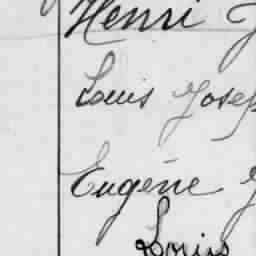 Henri J
Louis Josep
Eugène J
Louis